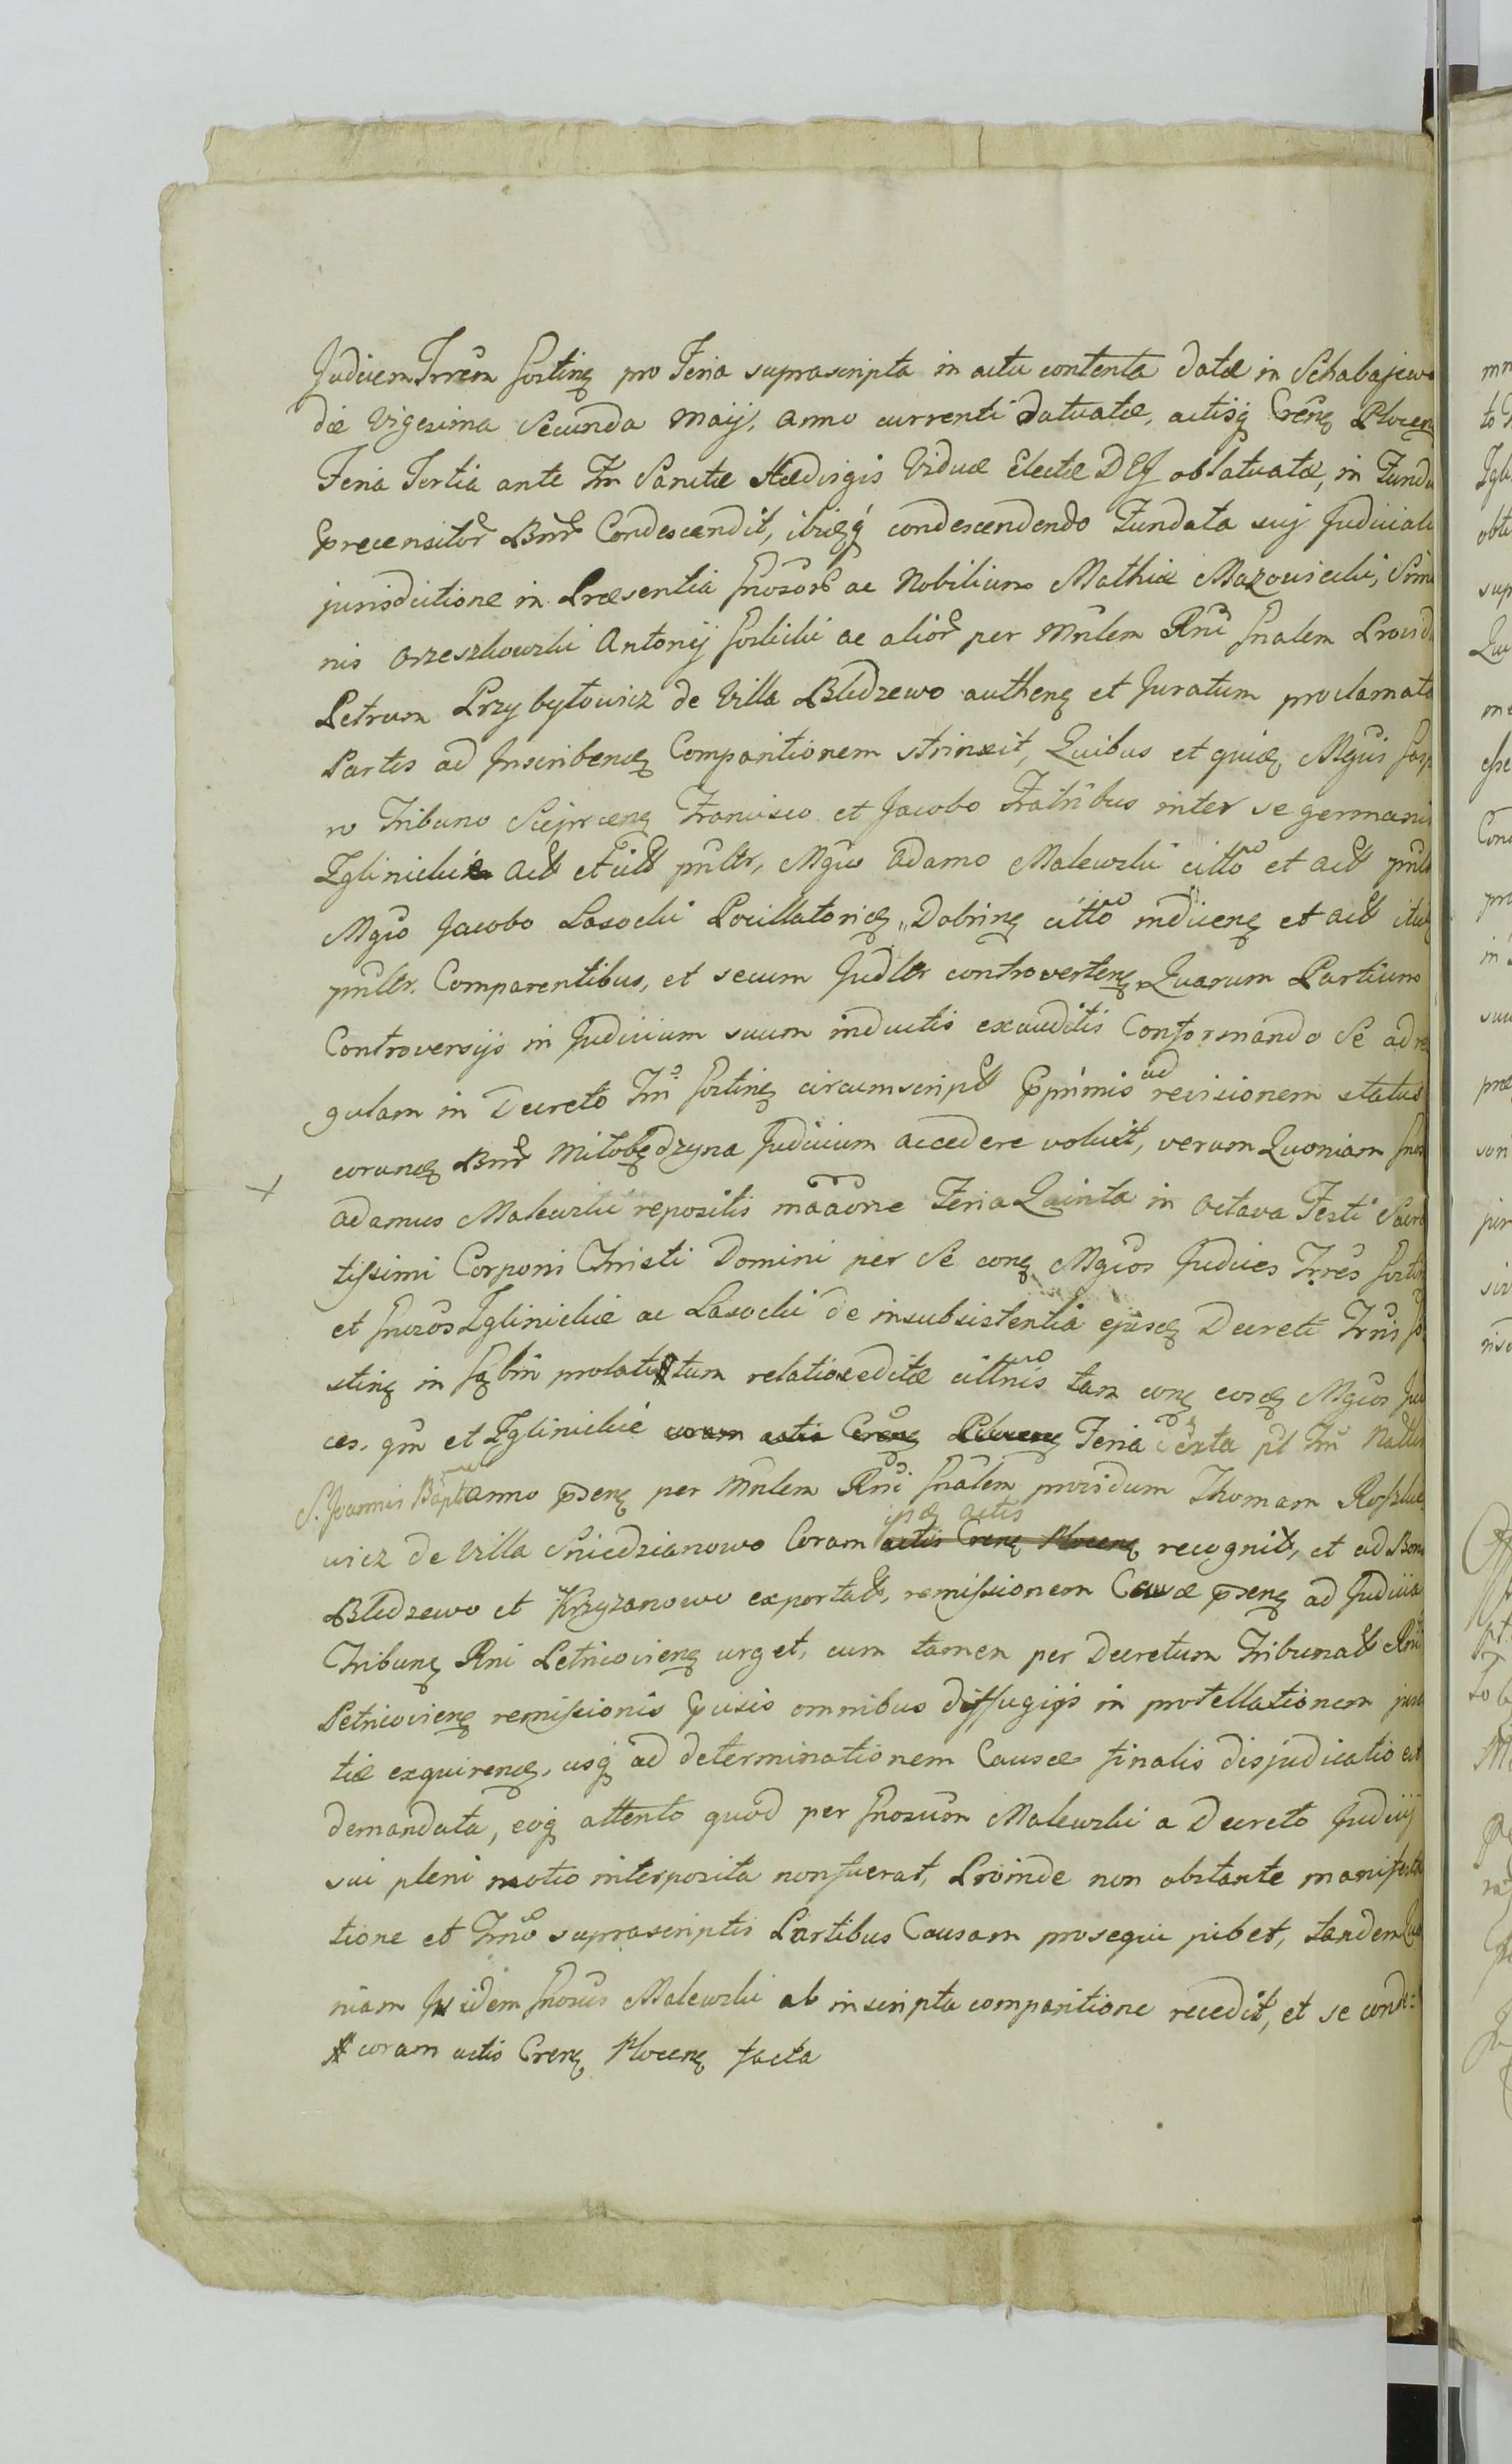 Judicem Trrem sostinę pro Feria suprascripta in actu contenta datæ in Schabajewo
die Vigesima Secunda Maij, anno currenti datuatæ, actisq Crenę Plocenę
Feria Tertia ante Fm Sanctæ Hædvigis Viduæ Electæ DEJ oblatuatæ, in Fundu
precensitor Bnr Condescendit, ibiq condescendendo Fundata suj Judiciali
jurisdictione in Præsentia Gnosor ac Nobilium Mathiæ Mazowiecki, Simo
nis Orzeszkowski Antonij ac alior per Mnlem Rni Gnalem Provid
Petrum Przybytowicz de Villa Bledzewo authenę et Juratum proclamata
Partes ad Inscribendę Comparitionem strinxit, Quibus et quidę Mgcis Gasp
ro Tribuno Sieprcenę Francisco et Jacobo Fratribus inter se germanis
Zglinickie act et citt pnltr, Mgco Adamo Malewski citto et act pnltr
Mgco Jacobo Lasocki Pocillatoridę Dobrinę citto indicenę et act itidę
pnltr. Comparentibus, et secum Judltr controvertenę Quarum Partium
Controversijs in Judicium suum inductis exauditis Conformando Se ad re
gulam in Decreto Tm sostinę circumscript Inprimis ad revisionem status
eorundę Bnr Mitobędzyna Judicium accedere voluit, verum Quoniam Gnos
Adamus Malewski repositis maaone Feria Quinta in Octava Festi Sacra
tissimi Corporis Christi Domini per Se conę Mgcos Judices Trres sostin
et Gnosos Zglinickie ac Lasocki de insubsistentia ejusdę Decreti Trris so
stinę in prolati tum relatione editæ cittnis tam conę eosdę Mgcos Jud
ces, qm et Zglinickie coram actis Crenę Plocenę Feria Sexta pt Fm Nattis
S. Joannis Bapt anno psenę per Mnlem Rni Gnalem providum Thomam Roszkie
ipsdę actis
wicz de Villa Sniedzianowo Coram actis Crenę Plocenę recognit, et ad Bona
Bledzewo et Krzyzanowo exportatt, remissionem Causæ psenę ad Judicia
Tribunę Rni Petricovienę urget, cum tamen per Decretum Tribunatt Rni
Petricovienę remissionis Precisis omnibus diffugijs in protellationem justi
tiæ exquirendę, usq ad determinationem Causæ finalis disjudicatio est
demandata, eoq attento quod per Gnosum Malewski a Decreto Judicij
sui pleni motio interposita non fuerat, Proinde non obstante manifesta
tione et Trmo suprascriptis Partibus Causam prosequi jubet, tandem Quo
niam idem Gnosus Malewski ab inscripta comparitione recedit, et se conde:
coram actis Crenę Plocenę facta